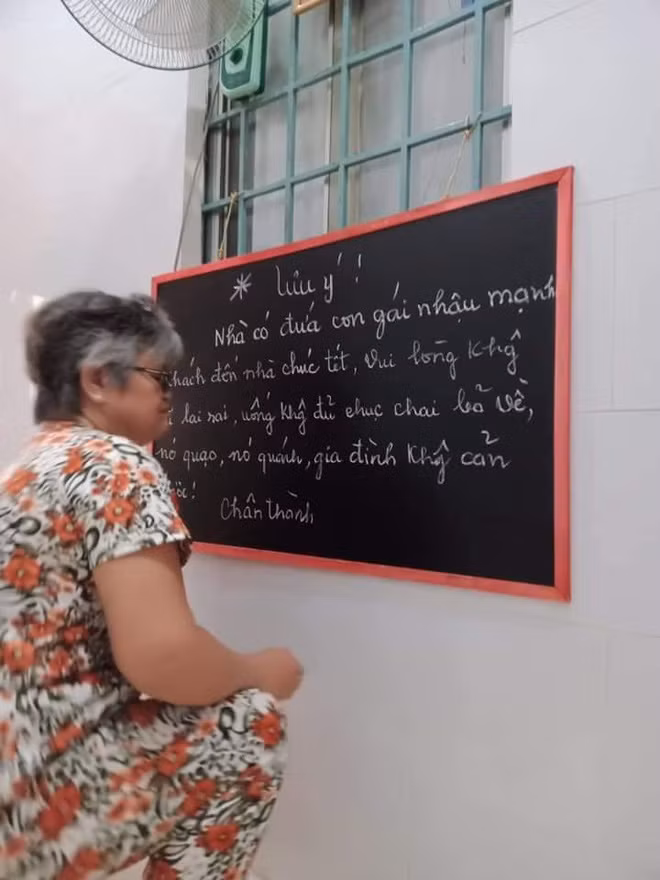 * Lưu ý !
Nhà có đứa con gái nhậu mạnh
khách đến nhà chúc tết, Vui lòng Khg
lai rai, uống Khg đủ chục chai bỏ về,
nó quạo, nó quánh, gia đình Khg cản
Chân thành